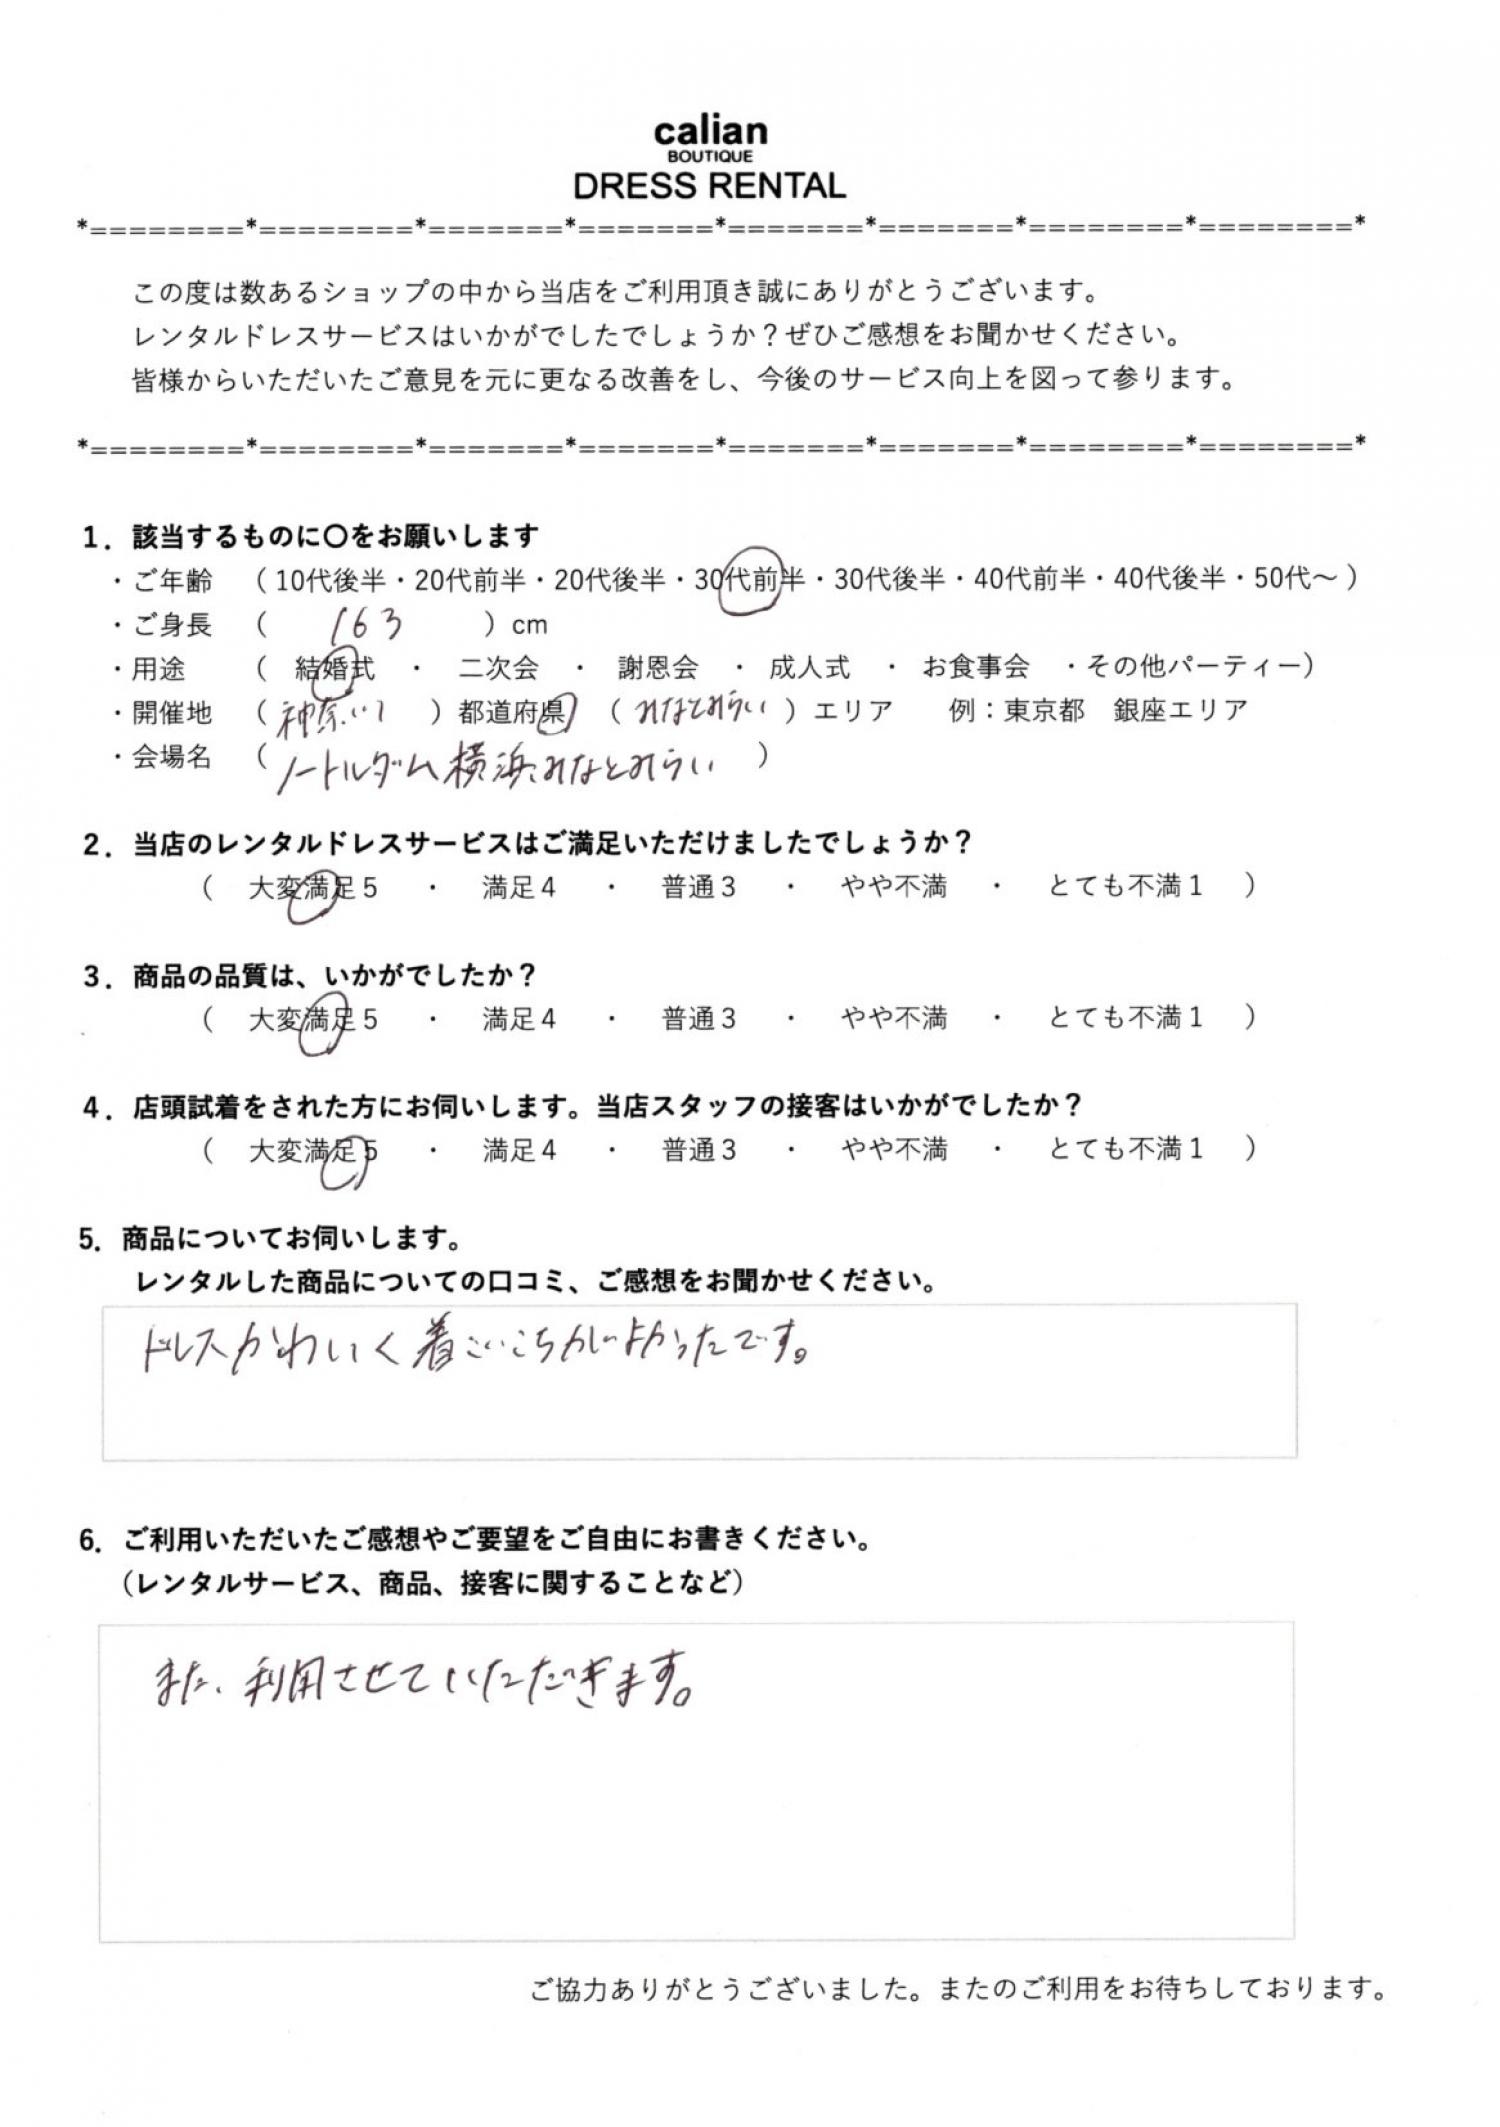 calian
BOUTIQUE
DRESS RENTAL
*========*========*=======*=======*=======*=======*========*========*
この度は数あるショップの中から当店をご利用頂き誠にありがとうございます。
レンタルドレスサービスはいかがでしたでしょうか？ぜひご感想をお聞かせください。
皆様からいただいたご意見を元に更なる改善をし、今後のサービス向上を図って参ります。
*========*========*=======*=======*=======*=======*========*========*
1．該当するものに〇をお願いします
・ご年齢 （ 10代後半・20代前半・20代後半・30代前半・30代後半・40代前半・40代後半・50代～ ）
・ご身長 （ 163 ）cm
・用途 （ 結婚式 ・ 二次会 ・ 謝恩会 ・ 成人式 ・ お食事会 ・その他パーティー）
・開催地 （ 神奈川 ）都道府県 （ みなとみらい ）エリア 例：東京都 銀座エリア
・会場名 （ ノートルダム横浜みなとみらい ）
2．当店のレンタルドレスサービスはご満足いただけましたでしょうか？
（ 大変満足５ ・ 満足４ ・ 普通３ ・ やや不満 ・ とても不満１ ）
3．商品の品質は、いかがでしたか？
（ 大変満足５ ・ 満足４ ・ 普通３ ・ やや不満 ・ とても不満１ ）
4．店頭試着をされた方にお伺いします。当店スタッフの接客はいかがでしたか？
（ 大変満足５ ・ 満足４ ・ 普通３ ・ やや不満 ・ とても不満１ ）
5．商品についてお伺いします。
レンタルした商品についての口コミ、ご感想をお聞かせください。
ドレスかわいく着ごこちがよかったです。
6．ご利用いただいたご感想やご要望をご自由にお書きください。
（レンタルサービス、商品、接客に関することなど）
また、利用させていただきます。
ご協力ありがとうございました。またのご利用をお待ちしております。